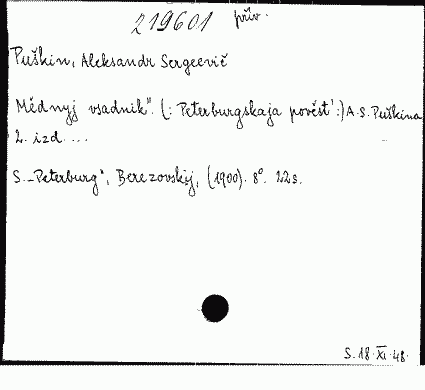 219601 přív.
Puškin, Aleksandr Sergeevič
Mědnyj vsadnik". (: Peterburgskaja pověst':) A.S. Puškina
2. izd. ...
S.-Peterburg", Berezovskij, (1900). 8°. 22 s.
S. 18·XI·48·